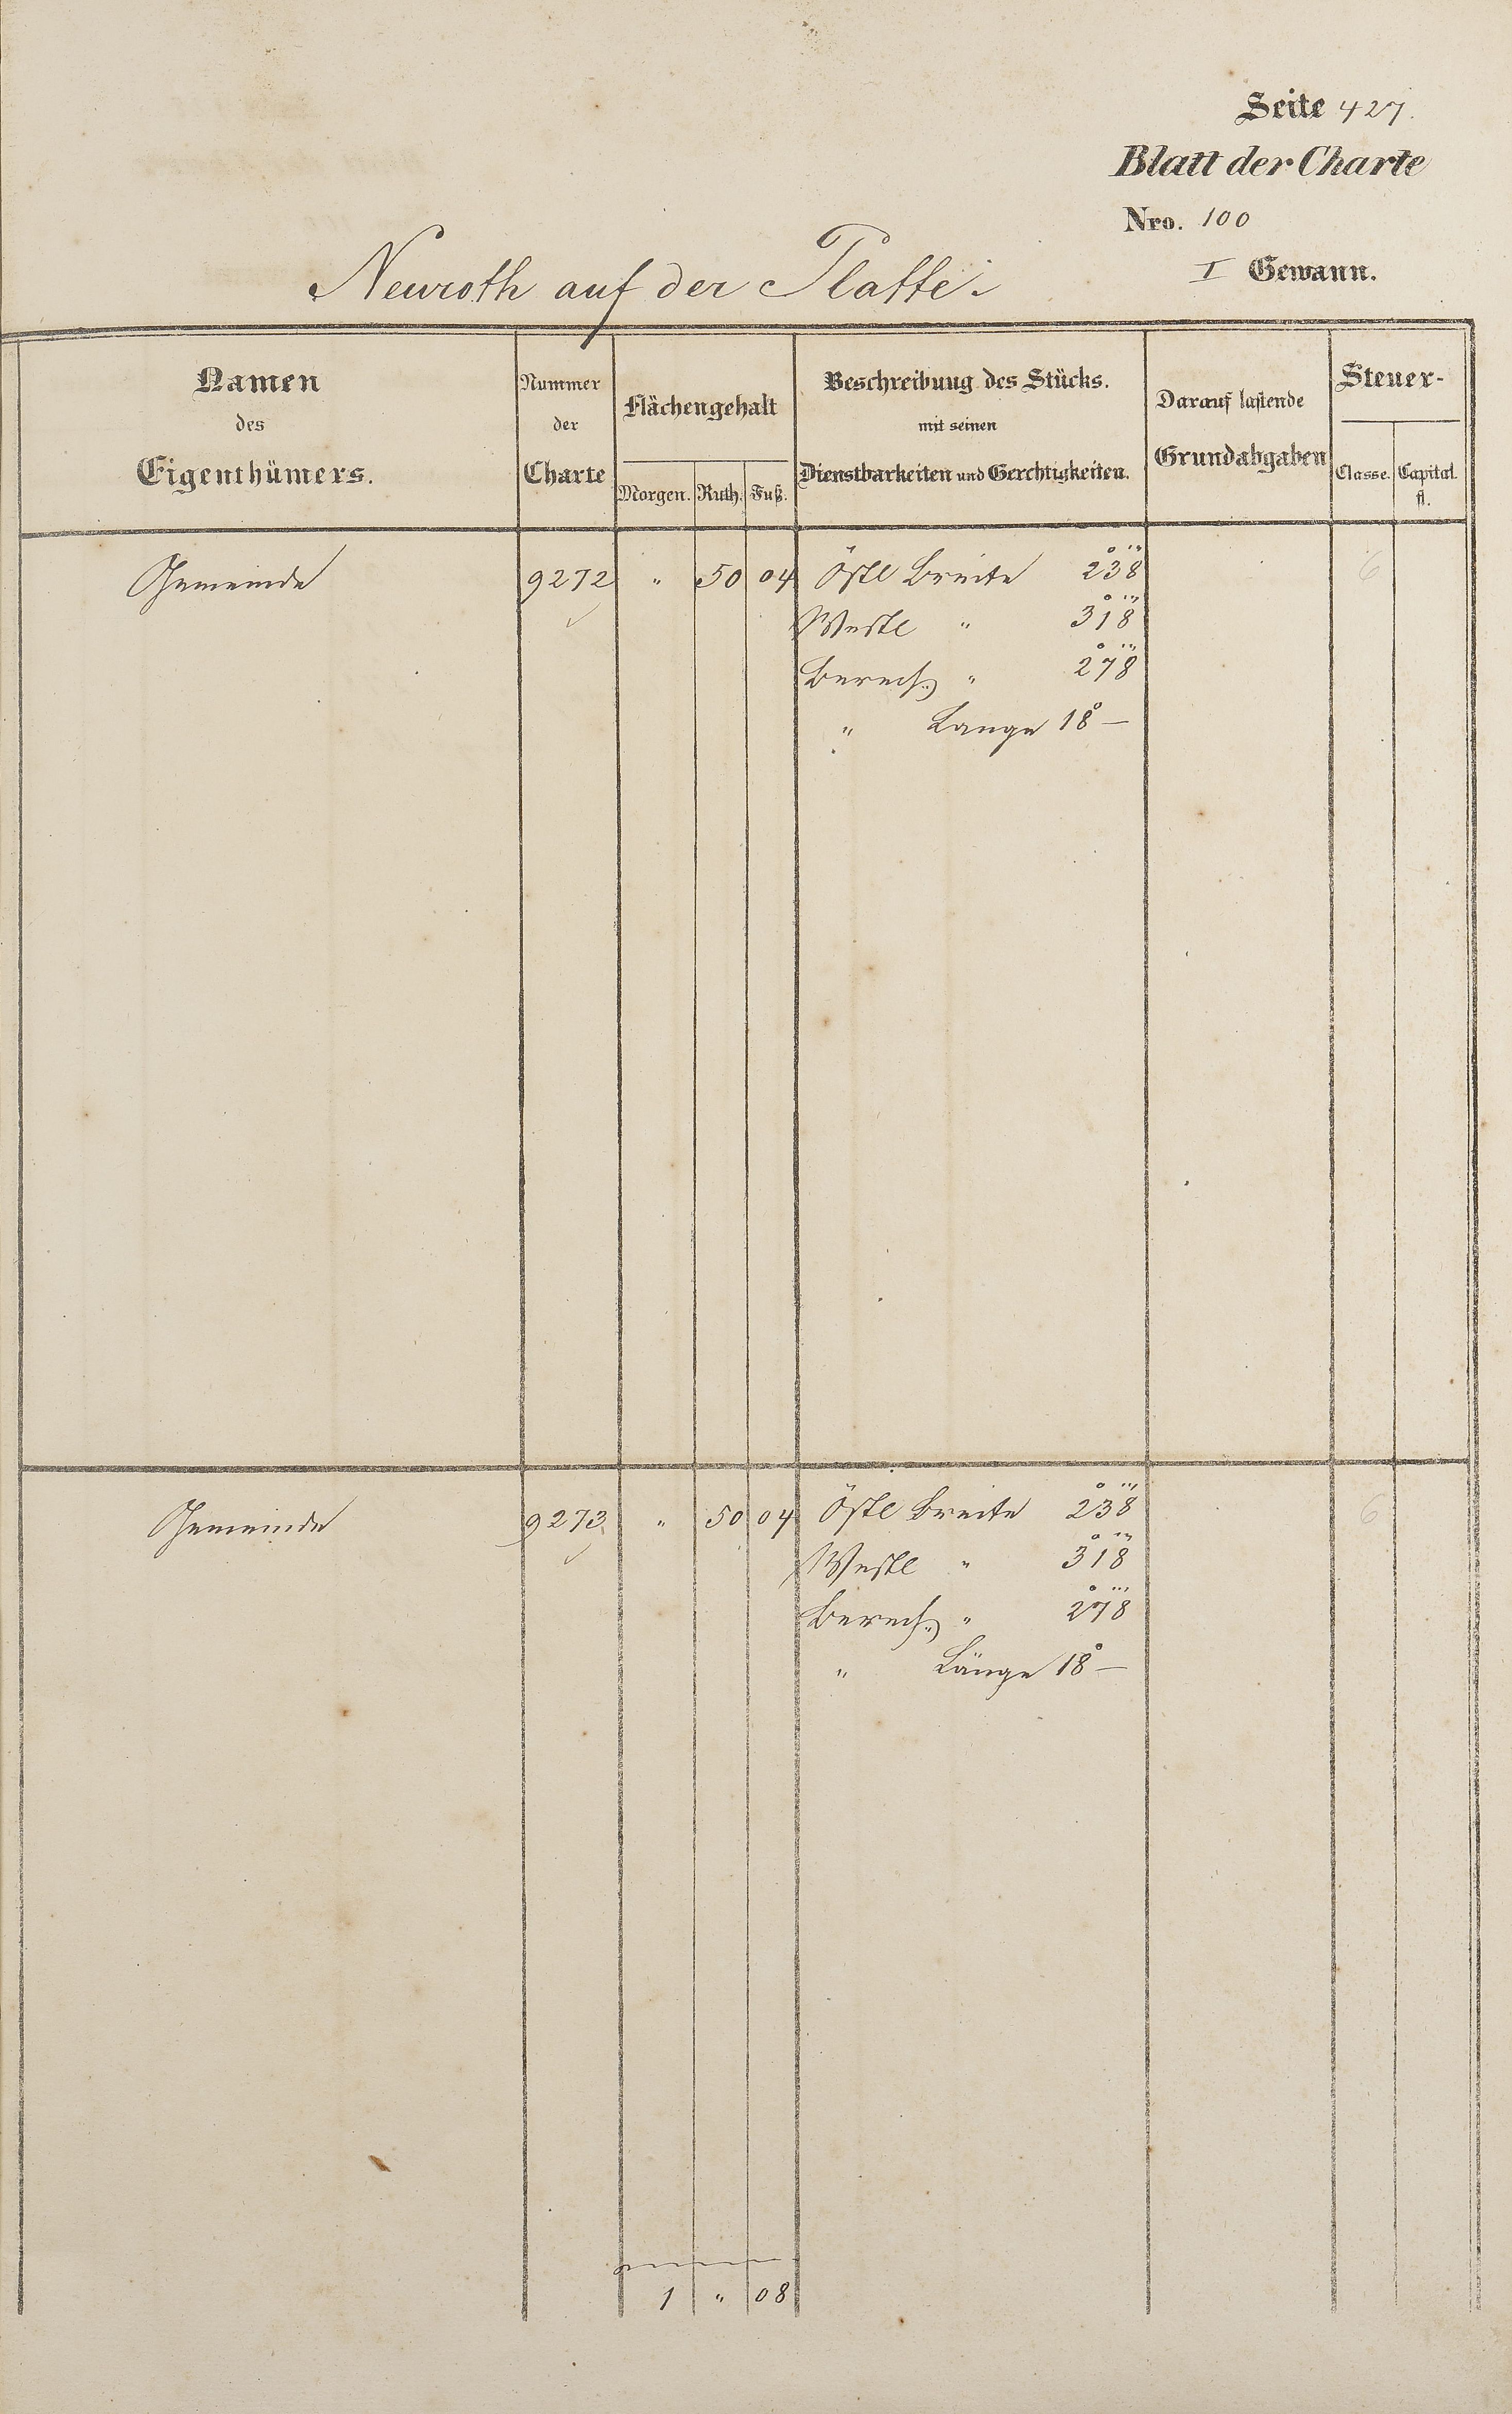 Seite 427.
Blatt der Charte
Nro. 100
I Gewann.
Neuroth auf der Platte.
Namen des Eigenthümers.
Nummer der Charte
Flächengehalt
Morgen. Ruth. Fuß.
Beschreibung des Stücks.
mit seinen
Dienstbarkeiten und Gerechtigkeiten.
Darauf lastende
Grundabgaben
Steuer-
Classe. Capital.
fl.
Gemeinde 9272 " 50 04 Östl Breite 2° 38''' 6
Westl " 3° 18'''
Berech. " 2° 78'''
" Lange 18° —
Gemeinde 9273 " 50 04 Östl Breite 2° 38''' 6
Westl " 3° 18'''
Berech. " 2° 78'''
" Länge 18° —
1 " 08